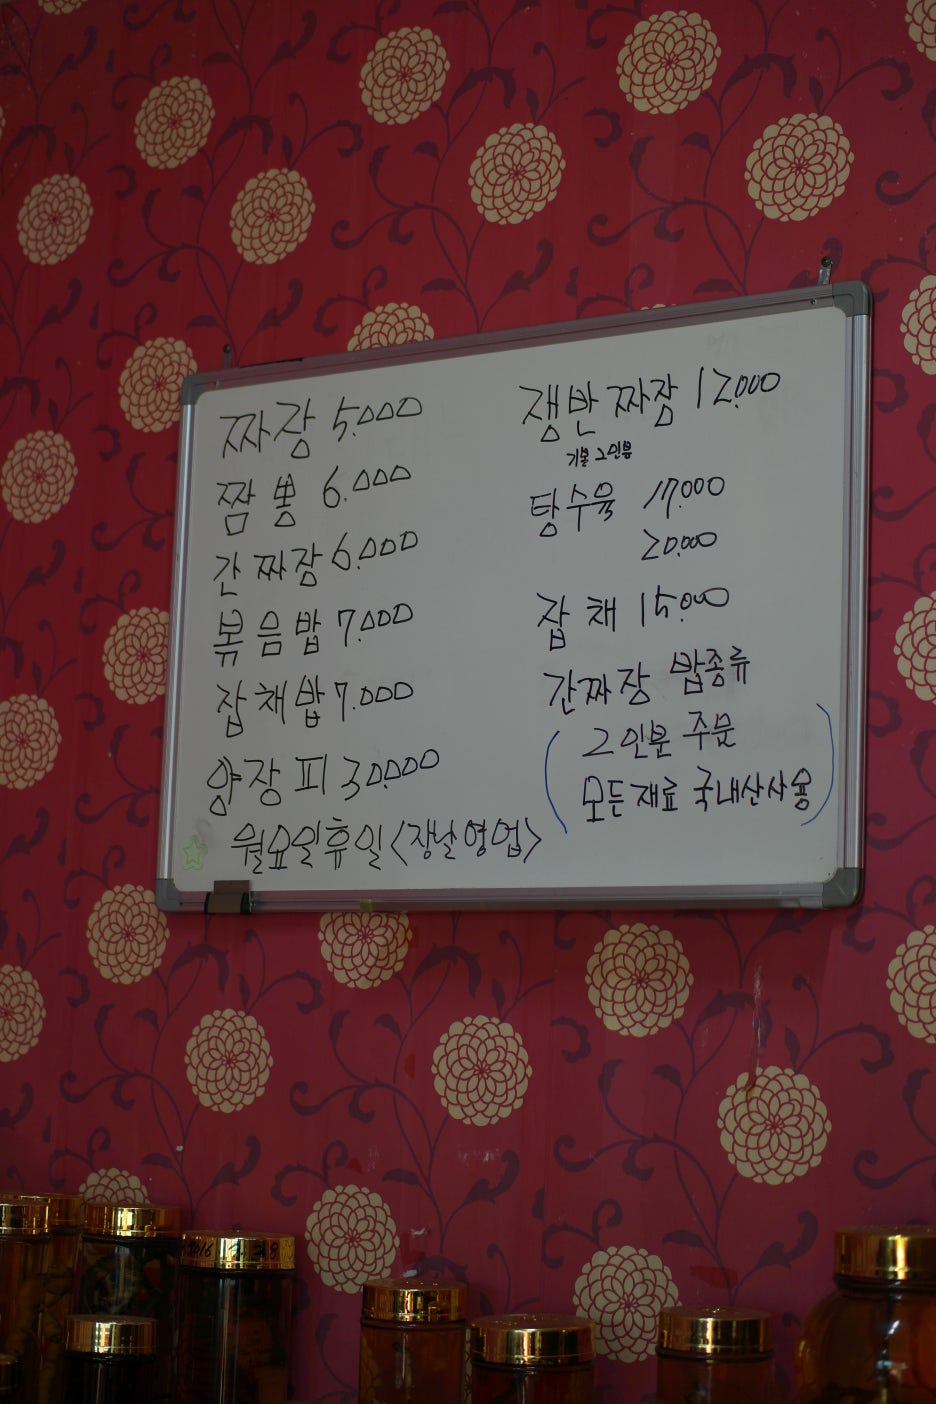 짜장 5.000
짬뽕 6.000
간짜장 6.000
볶음밥 7.000
잡채밥 7.000
양장피 30.000
월요일휴일<장날영업>
쟁반짜장 12.000
기본 2인분
탕수육 17.000
20.000
잡채 15.000
간짜장 밥종류
(2인분 주문
모든재료 국내산사용)
2016